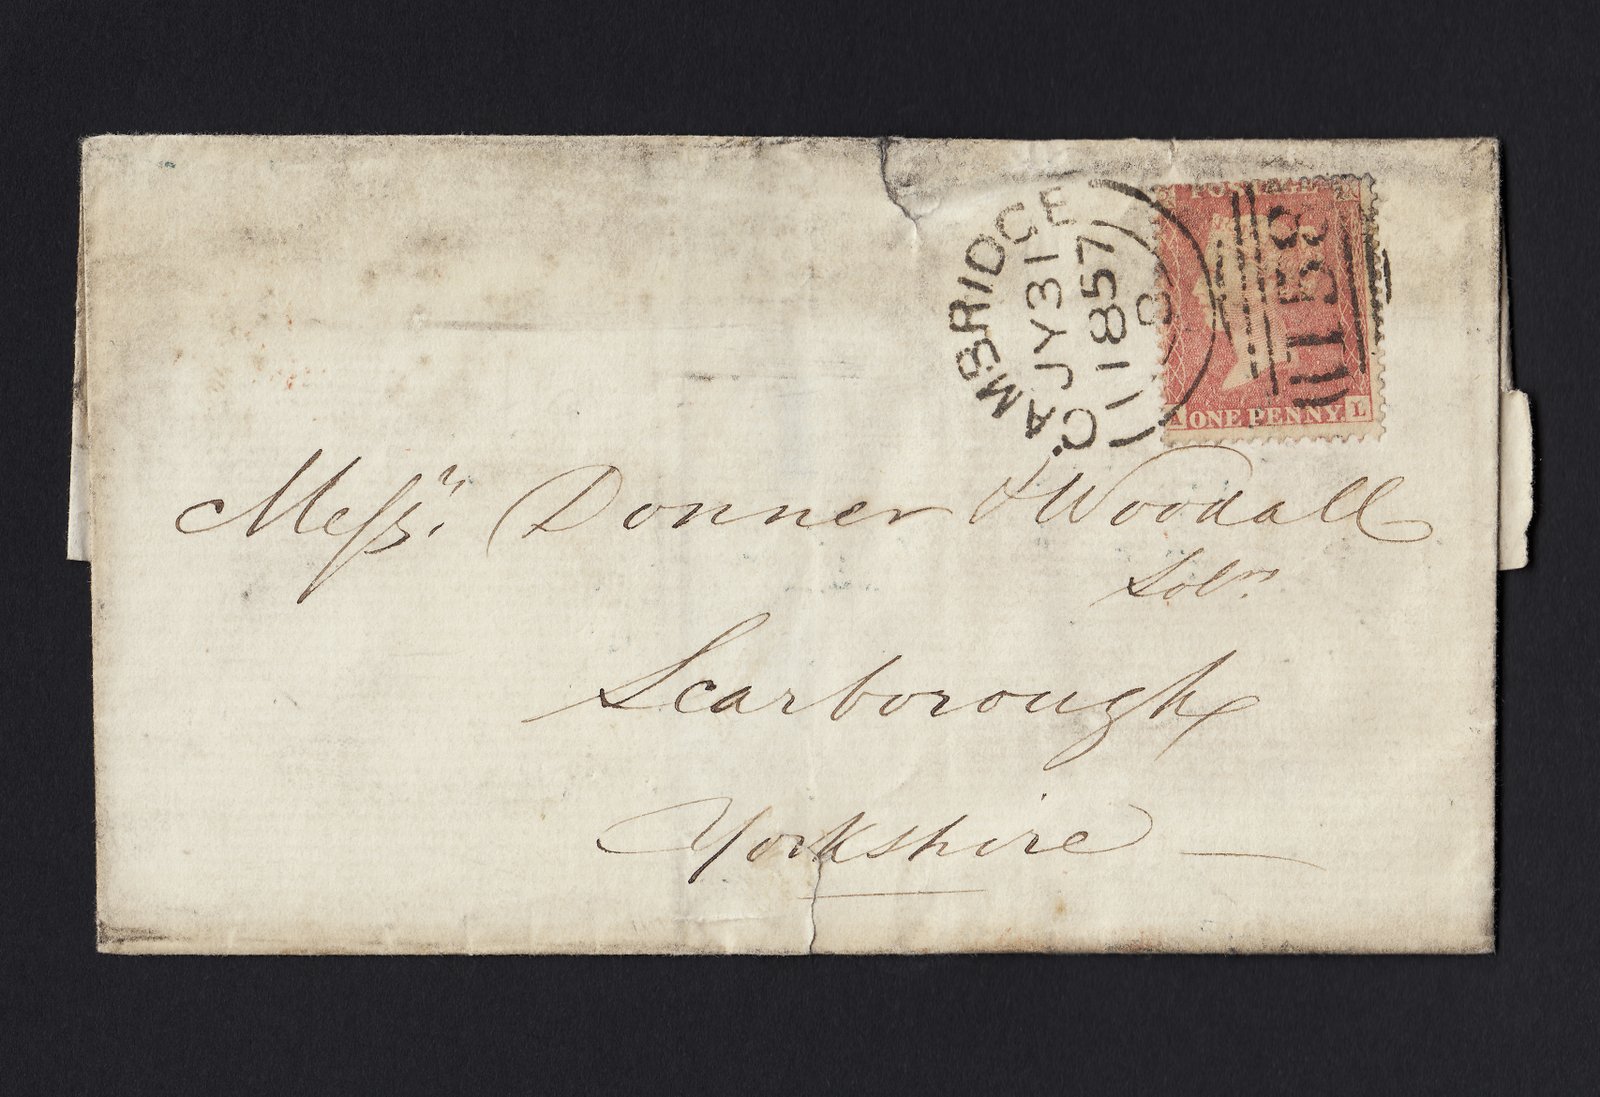 CAMBRIDGE
JY 31
1857
8
158
POSTAGE
ONE PENNY.
L
Messrs. Donner & Woodall
Solrs.
Scarborough
Yorkshire